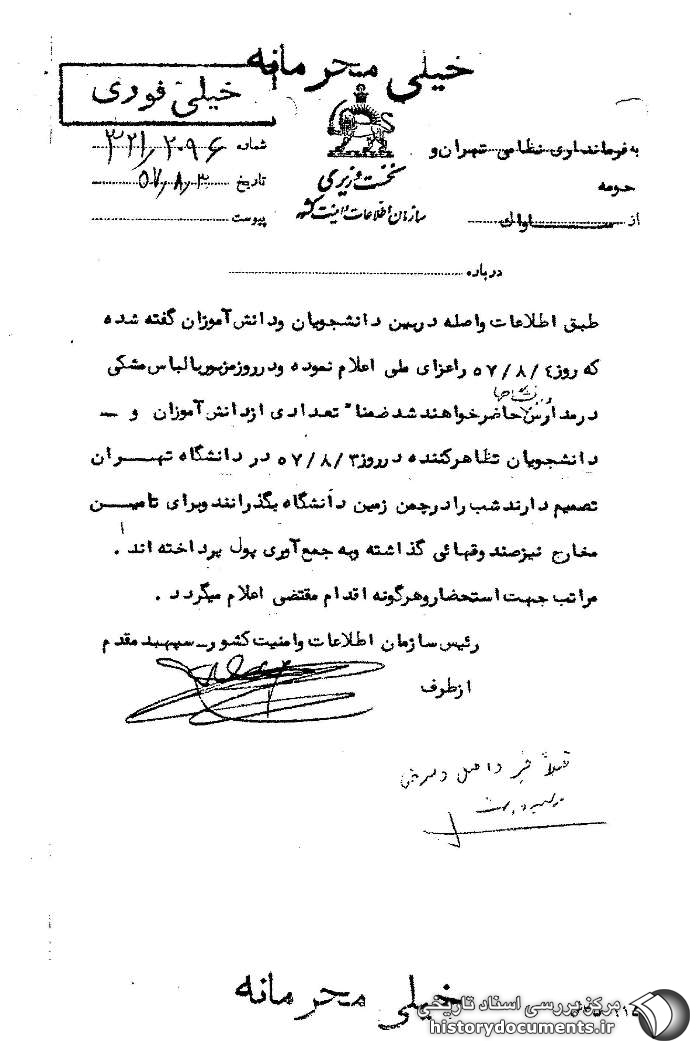 خیلی محرمانه
خیلی فوری
شماره ۳۲۱/۲۰۹۶
تاریخ ۵۷/۸/۳
پیوست
نخست وزیری
سازمان اطلاعات و امنیت کشور
به فرمانداری نظامی تهران و
حومه
از ساواك
درباره
طبق اطلاعات واصله دربین دانشجویان ودانش آموزان گفته شده
که روز ۵۷/۸/٤ راعزای ملی اعلام نموده ودرروزمزبوربالباس مشکی
درمدارس حاضرخواهندشد ضمنا" تعدادی ازدانش آموزان و ــ
دانشجویان تظاهرکننده درروز ۵۷/۸/۳ در دانشگاه تهران
تصمیم دارند شب رادرچمن زمین دانشگاه بگذرانند وبرای تامین
مخارج نیزصندوقهائی گذاشته وبه جمع آوری پول پرداخته اند .
مراتب جهت استحضار وهرگونه اقدام مقتضی اعلام میگردد .
رئیس سازمان اطلاعات وامنیت کشور ــ سپهبد مقدم
ازطرف
قبلاً خبر واصل و
خیلی محرمانه
مرکز بررسی اسناد تاریخی
historydocuments.ir